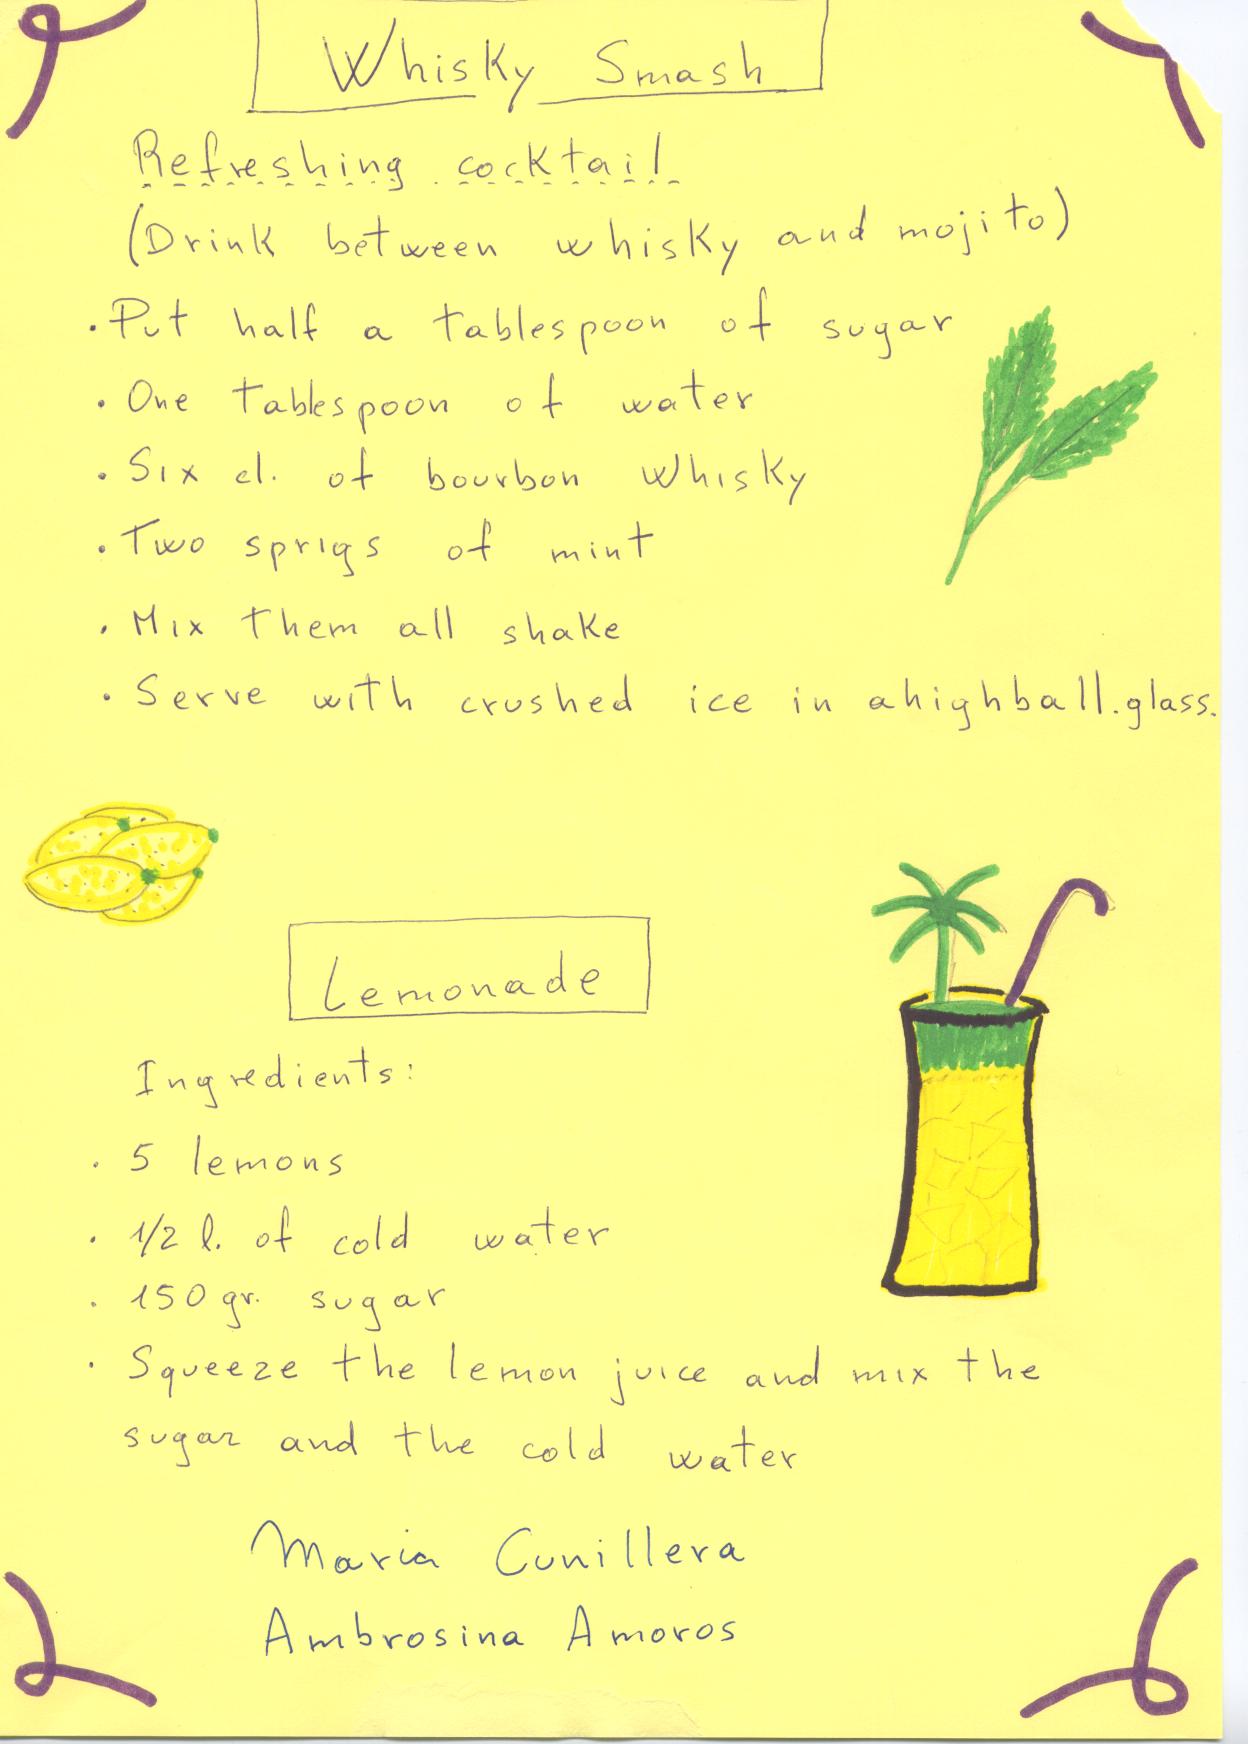 Whisky Smash
Refreshing cocktail
(Drink between whisky and mojito)
. Put half a tablespoon of sugar
. One tablespoon of water
. Six cl. of bourbon whisky
. Two sprigs of mint
. Mix them all shake
. Serve with crushed ice in ahighball.glass.
Lemonade
Ingredients:
. 5 lemons
. 1/2 l. of cold water
. 150 gr. sugar
. Squeeze the lemon juice and mix the
sugar and the cold water
Maria Cunillera
Ambrosina Amoros